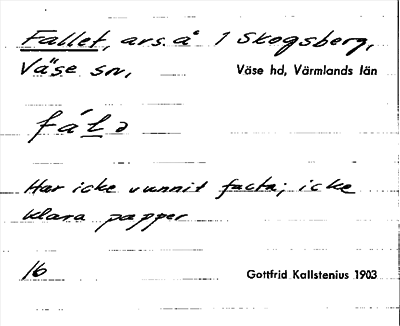 Fallet, avs. å 1 Skogsberg,
Väse sn, Väse hd, Värmlands län
fáḷə
Har icke vunnit facta; icke
klara papper
16 Gottfrid Kallstenius 1903